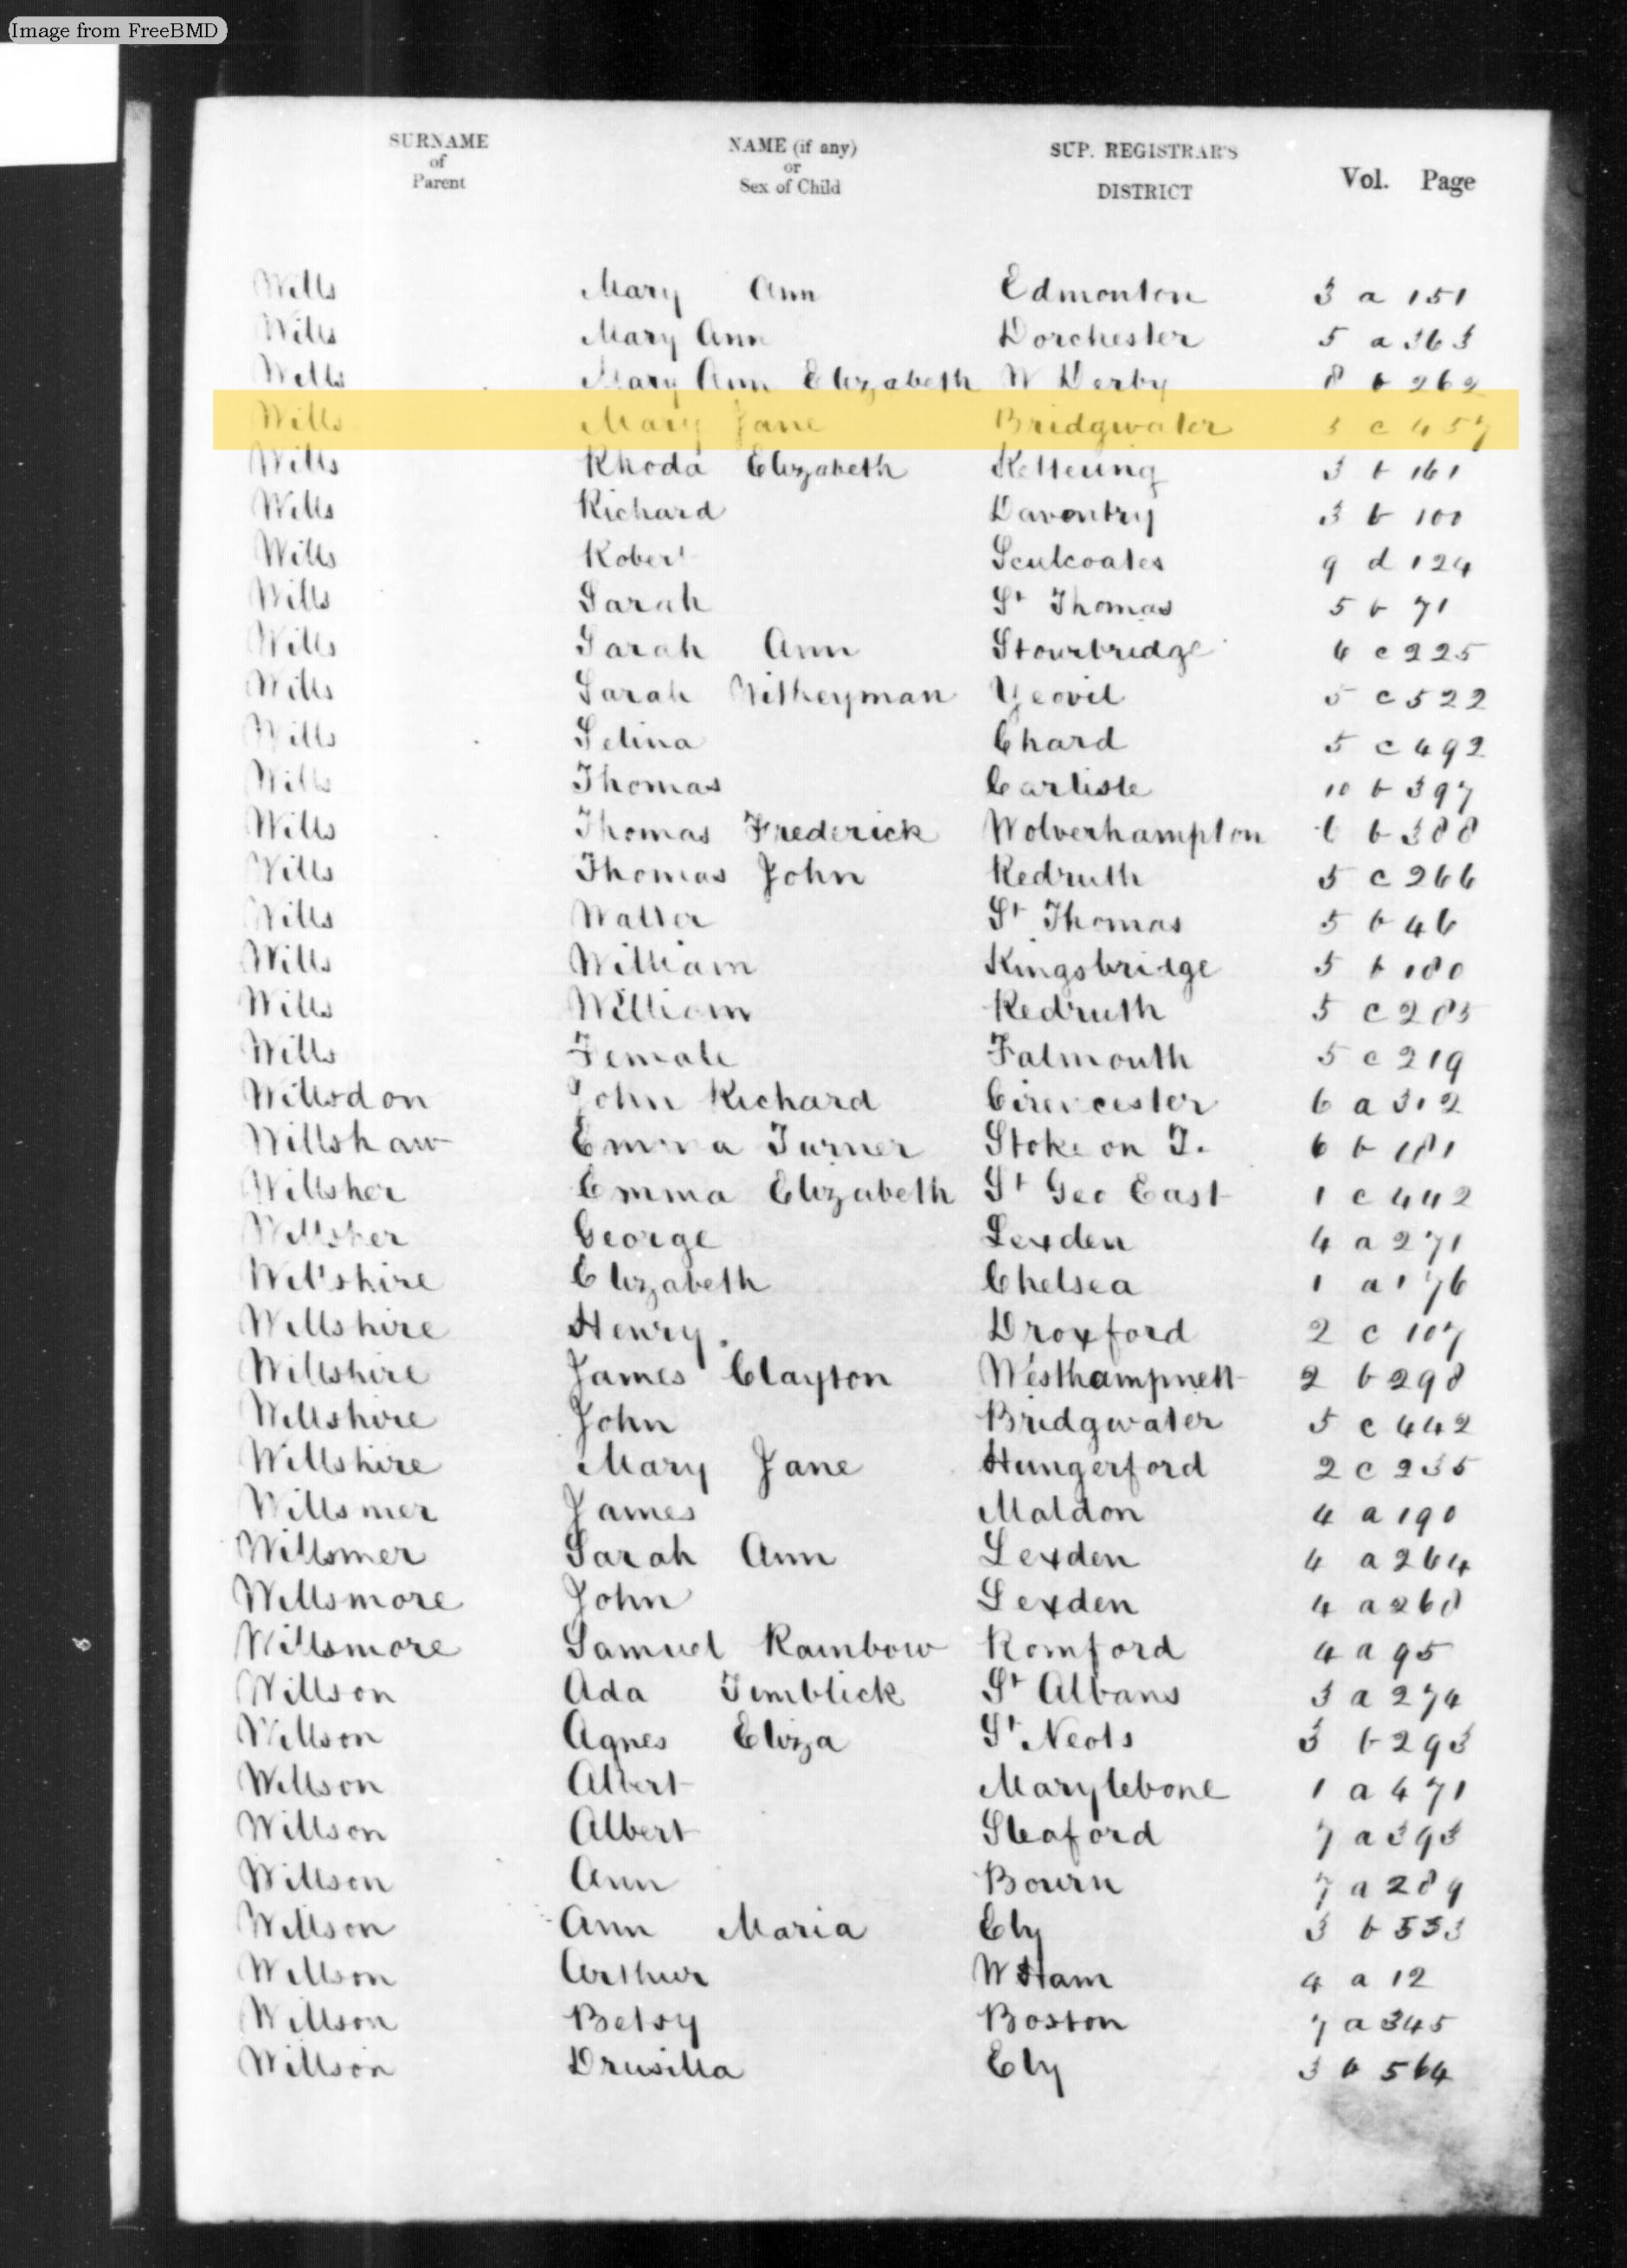 Image from FreeBMD
SURNAME of Parent NAME (if any) or Sex of Child SUP. REGISTRAR'S DISTRICT Vol. Page
Wills Mary Ann Edmonton 3 a 151
Wills Mary Ann Dorchester 5 a 363
Wills Mary Ann Elizabeth W Derby 8 b 262
Wills Mary Jane Bridgwater 5 c 457
Wills Rhoda Elizabeth Kettering 3 b 161
Wills Richard Daventry 3 b 100
Wills Robert Sculcoates 9 d 124
Wills Sarah St Thomas 5 b 71
Wills Sarah Ann Stourbridge 6 c 225
Wills Sarah Witheyman Yeovil 5 c 522
Wills Selina Chard 5 c 492
Wills Thomas Carlisle 10 b 397
Wills Thomas Frederick Wolverhampton 6 b 388
Wills Thomas John Redruth 5 c 266
Wills Walter St Thomas 5 b 46
Wills William Kingsbridge 5 b 180
Wills William Redruth 5 c 285
Wills Female Falmouth 5 c 219
Willsdon John Richard Cirencester 6 a 312
Willshaw Emma Turner Stoke on T. 6 b 181
Willsher Emma Elizabeth St Geo East 1 c 442
Willsher George Lexden 4 a 271
Willshire Elizabeth Chelsea 1 a 176
Willshire Henry. Droxford 2 c 107
Willshire James Clayton Westhampnett 2 b 298
Willshire John Bridgwater 5 c 442
Willshire Mary Jane Hungerford 2 c 235
Willsmer James Maldon 4 a 190
Willsmer Sarah Ann Lexden 4 a 264
Willsmore John Lexden 4 a 268
Willsmore Samuel Rainbow Romford 4 a 95
Willson Ada Timblick St Albans 3 a 274
Willson Agnes Eliza St Neots 3 b 293
Willson Albert Marylebone 1 a 471
Willson Albert Sleaford 7 a 393
Willson Ann Bourn 7 a 289
Willson Ann Maria Ely 3 b 553
Willson Arthur W Ham 4 a 12
Willson Betsy Boston 7 a 345
Willson Drusilla Ely 3 b 564